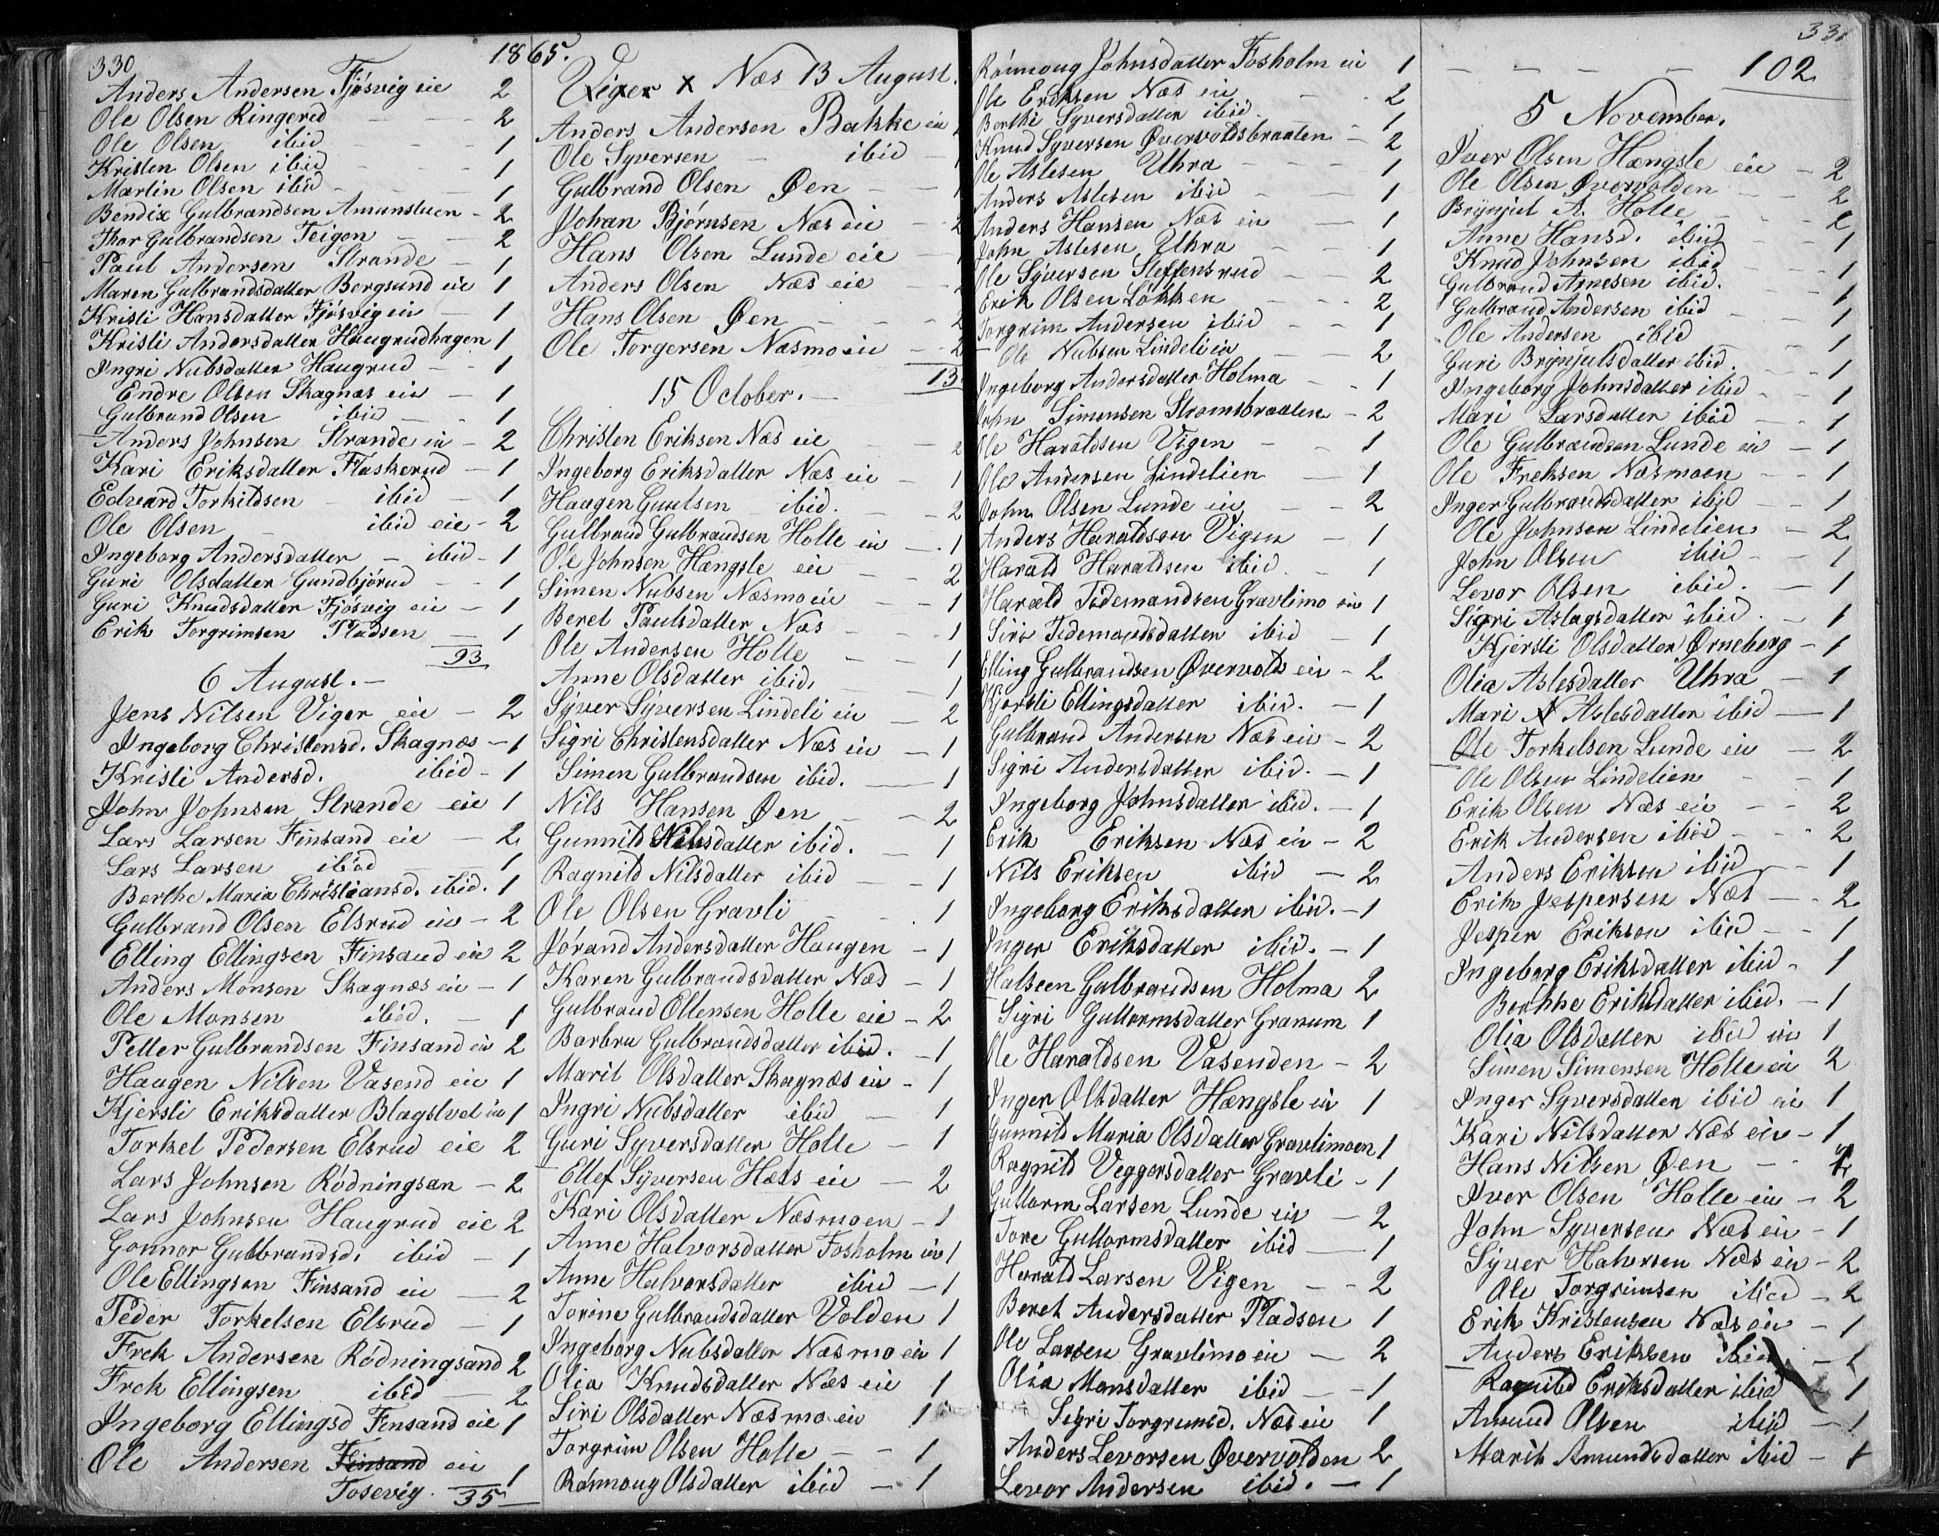 330
1865.
Anders Andersen Fjösvig eie 2
Ole Olsen Ringerud - - 2
Ole Olsen ibid - - 1
Kristen Olsen ibid - 1
Martin Olsen ibid - - 1
Bendix Gulbrandsen Amunstuen - 2
Thor Gulbrandsen Teigen - - 2
Paul Andersen Strande - 1
Maren Gulbrandsdatter Bergsund eie 1
Kristi Hansdatter Fjösvig ein - 1
Kristi Andersdatter Haugrudhagen 1
Ingri Nubsdatter Haugrud - - 1
Endre Olsen Skagnæs ein - 1
Gulbrand Olsen ibid - - 1
Anders Johnsen Strande ein - 2
Kari Eriksdatter Flaskerud - 1
Edvard Torkildsen - ibid - 1
Ole Olsen ibid eie - 2
Ingeborg Andersdatter - ibid - 1
Guri Olsdatter Gundbjörud - - 1
Guri Knudsdatter Fjösvig eie - 1
Erik Torgrimsen Pladsen - 1
93
6 August. -
Jens Nilsen Viger eie - 2
Ingeborg Christensd. Skagnæs - 1
Kristi Andersd. ibid - 1
John Johnsen Strande eie 1
Lars Larsen Finsand eie - 2
Lars Larsen ibid - 1
Berthe Maria Christiansd. ibid. 1
Gulbrand Olsen Elsrud ein - 2
Elling Ellingsen Finsand eie 2
Anders Monsen Skagnæs ein - 1
Ole Monsen ibid. - 1
Petter Gulbrandsen Finsand ein 2
Haagen Nilsen Vasend eie 1
Kjersti Eriksdatter Blagstvet ein 1
Torkel Pedersen Elsrud eie 2
Lars Johnsen Rödningsan - 2
Lars Johnsen Haugrud eie 2
Gonnor Gulbrandsd. ibid - 1
Ole Ellingsen Finsand eie - 2
Peder Torkelsen Elsrud - 1
Frek Andersen Rödningsand 2
Frek Ellingsen ibid - 2
Ingeborg Ellingsd Finsand eie 1
Ole Andersen Finsand ein 1
Tosevig. 35
Viger x Næs 13 August.
Anders Andersen Bakke ein
Ole Syversen - ibid -
Gulbrand Olsen Øen - -
Johan Bjørnsen Næs eie - 2
Hans Olsen Lunde eie -
Anders Olsen Næs eie
Hans Olsen Øen - - 2
Ole Torgersen Næsmoein - 2
13
15 October. -
Christen Eriksen Næs eie 2
Ingeborg Eriksdatter Næs ein - 1
Haagen Guulsen ibid. - 2
Gulbrand Gulbrandsen Holte ein - 1
Ole Johnsen Hængsle ein - - 2
Simen Nubsen Næsmoein - - 1
Beret Paulsdatter Næs - - 1
Ole Andersen Holte - - 1
Anne Olsdatter ibid, 1
Syver Syversen Lindeli ein - 2
Sigri Christensdatter Næs ein - 1
Simen Gulbrandsen ibid. - 1
Nils Hansen Øen - - 2
Gunnild Nilsdatter ibid. - 1
Ragnild Nilsdatter ibid - - 1
Ole Olsen Gravli - - 1
Jörand Andersdatter Haugen - 1
Karen Gulbrandsdatter Næs - 1
Gulbrand Ottensen Holte eie - 2
Barbru Gulbrandsdatter ibid. - 1
Marit Olsdatter Skagnæs ein - 1
Ingri Nubsdatter ibid - 1
Guri Syversdatter Holte - 1
Ellef Syversen Hæts ein - 2
Kari Olsdatter Næsmoen - 1
Anne Halvorsdatter Fosholm ein 1
Anne Halvorsdatter ibid - 1
Torine Gulbrandsdatter Volden 1
Ingeborg Nubsdatter Næsmoein 1
Olia Knudsdatter Næs eie 1
Siri Olsdatter Næsmoein 1
Torgrim Olsen Holte - - 1
Rönnoug Olsdatter ibid - 1
Rönnoug Johnsdatter Fosholm ein 1
Ole Eriksen Næs ein - - 2
Berthe Syversdatter ibid - - 1
Knud Syversen Øvervoldsbraaten - 2
Ole Aslesen Uhra - - - 1
Anders Aslesen ibid - - 1
Anders Hansen Næs ein - 1
John Aslesen Uhra - - 1
Ole Syversen Steffensrud - - 2
Erik Olsen Løkken - - 2
Torgrim Andersen ibid - - 1
Ole Nubsen Lindeliein - - 2
Ingeborg Andersdatter Holma - - 1
John Simensen Stromsbraaten - 2
Ole Haraldsen Vigen - - 1
Ole Andersen Lindelien - 1
John Olsen Lunde ein - - 2
Anders Haraldsen Vigen - 1
Harald Haraldsen ibid. - 1
Harald Tidemandsen Gravlimo ein 1
Siri Tidemandsdatter ibid - 1
Elling Gulbrandsen Øvervolds ein - 2
Kjersti Ellingsdatter ibid. - 1
Gulbrand Andersen Næs ein - 2
Sigri Andersdatter ibid. - 1
Ingeborg Johnsdatter ibid. - 1
Erik Eriksen Næs ein - 2
Nils Eriksen ibid - 2
Ingeborg Eriksdatter ibid. - 1
Inger Eriksdatter ibid. - 1
Halsten Gulbrandsen Holma 2
Sigri Guttormsdatter Granum 1
Ole Haraldsen Vasenden - 2
Inger Olsdatter Hængsle ein 1
Gunnild Maria Olsdatter Gravlimoen 1
Ragnild Veggersdatter Gravli - 1
Guttorm Larsen Lunde ein - 2
Tore Guttormsdatter ibid - 1
Harald Larsen Vigen - - 2
Beret Andersdatter Pladsen 1
Ole Larsen Gravlimoein - 2
Olia Monsdatter ibid - - 1
Sigri Torgrimsd. Næs ein 1
Anders Levorsen Øvervolden 2
Levor Andersen ibid. - 1
331
- - - - 102
5 November.
Iver Olsen Hængsle ein - 2
Ole Olsen Øvervolden - - 2
Brynjul A. Holte - - 2
Anne Hansd. ibid - - 1
Knud Johnsen ibid - - 1
Gulbrand Arnesen ibid. - - 1
Gulbrand Andersen ibid - - 1
Ole Andersen ibid - - 1
Guri Brynjulsdatter ibid. - 1
Ingeborg Johnsdatter ibid - - 1
Mari Larsdatter ibid - - 1
Ole Gulbrandsen Lunde ein - 1
Ole Freksen Næsmoen - - 1
Inger Gulbrandsdatter ibid - - 1
Ole Johnsen Lindelien - - 2
John Olsen ibid - - 1
Levor Olsen ibid. - 1
Sigri Aslagsdatter ibid. - 1
Kjersti Olsdatter Ørneberg - 1
Olia Aslesdatter Uhra - 1
Mari Aslesdatter ibid - 1
Ole Torkelsen Lunde ein - 2
Ole Olsen Lindelien - - 1
Erik Olsen Næs ein - - 2
Erik Andersen ibid - - 2
Anders Eriksen ibid - - 1
Erik Jespersen Næs - - 2
Jesper Eriksen ibid - - 1
Ingeborg Eriksdatter ibid - 1
Berthe Eriksdatter ibid. - 1
Olia Olsdatter ibid ein 1
Simen Simensen Holte ein 2
Inger Syversdatter ibid ein 1
Kari Nilsdatter Næs ein - 1
Hans Nilsen Øen - - 2
Iver Olsen Holte ein - 2
John Syversen Næs ein - 1
Syver Halvorsen Næs ein - 2
Ole Torgrimsen ibid - 2
Erik Kristensen Næs ein - 1
Anders Eriksen ibid - 1
Ragnild Eriksdatter ibid 1
Amund Olsen ibid - 1
Marit Amundsdatter ibid - 1